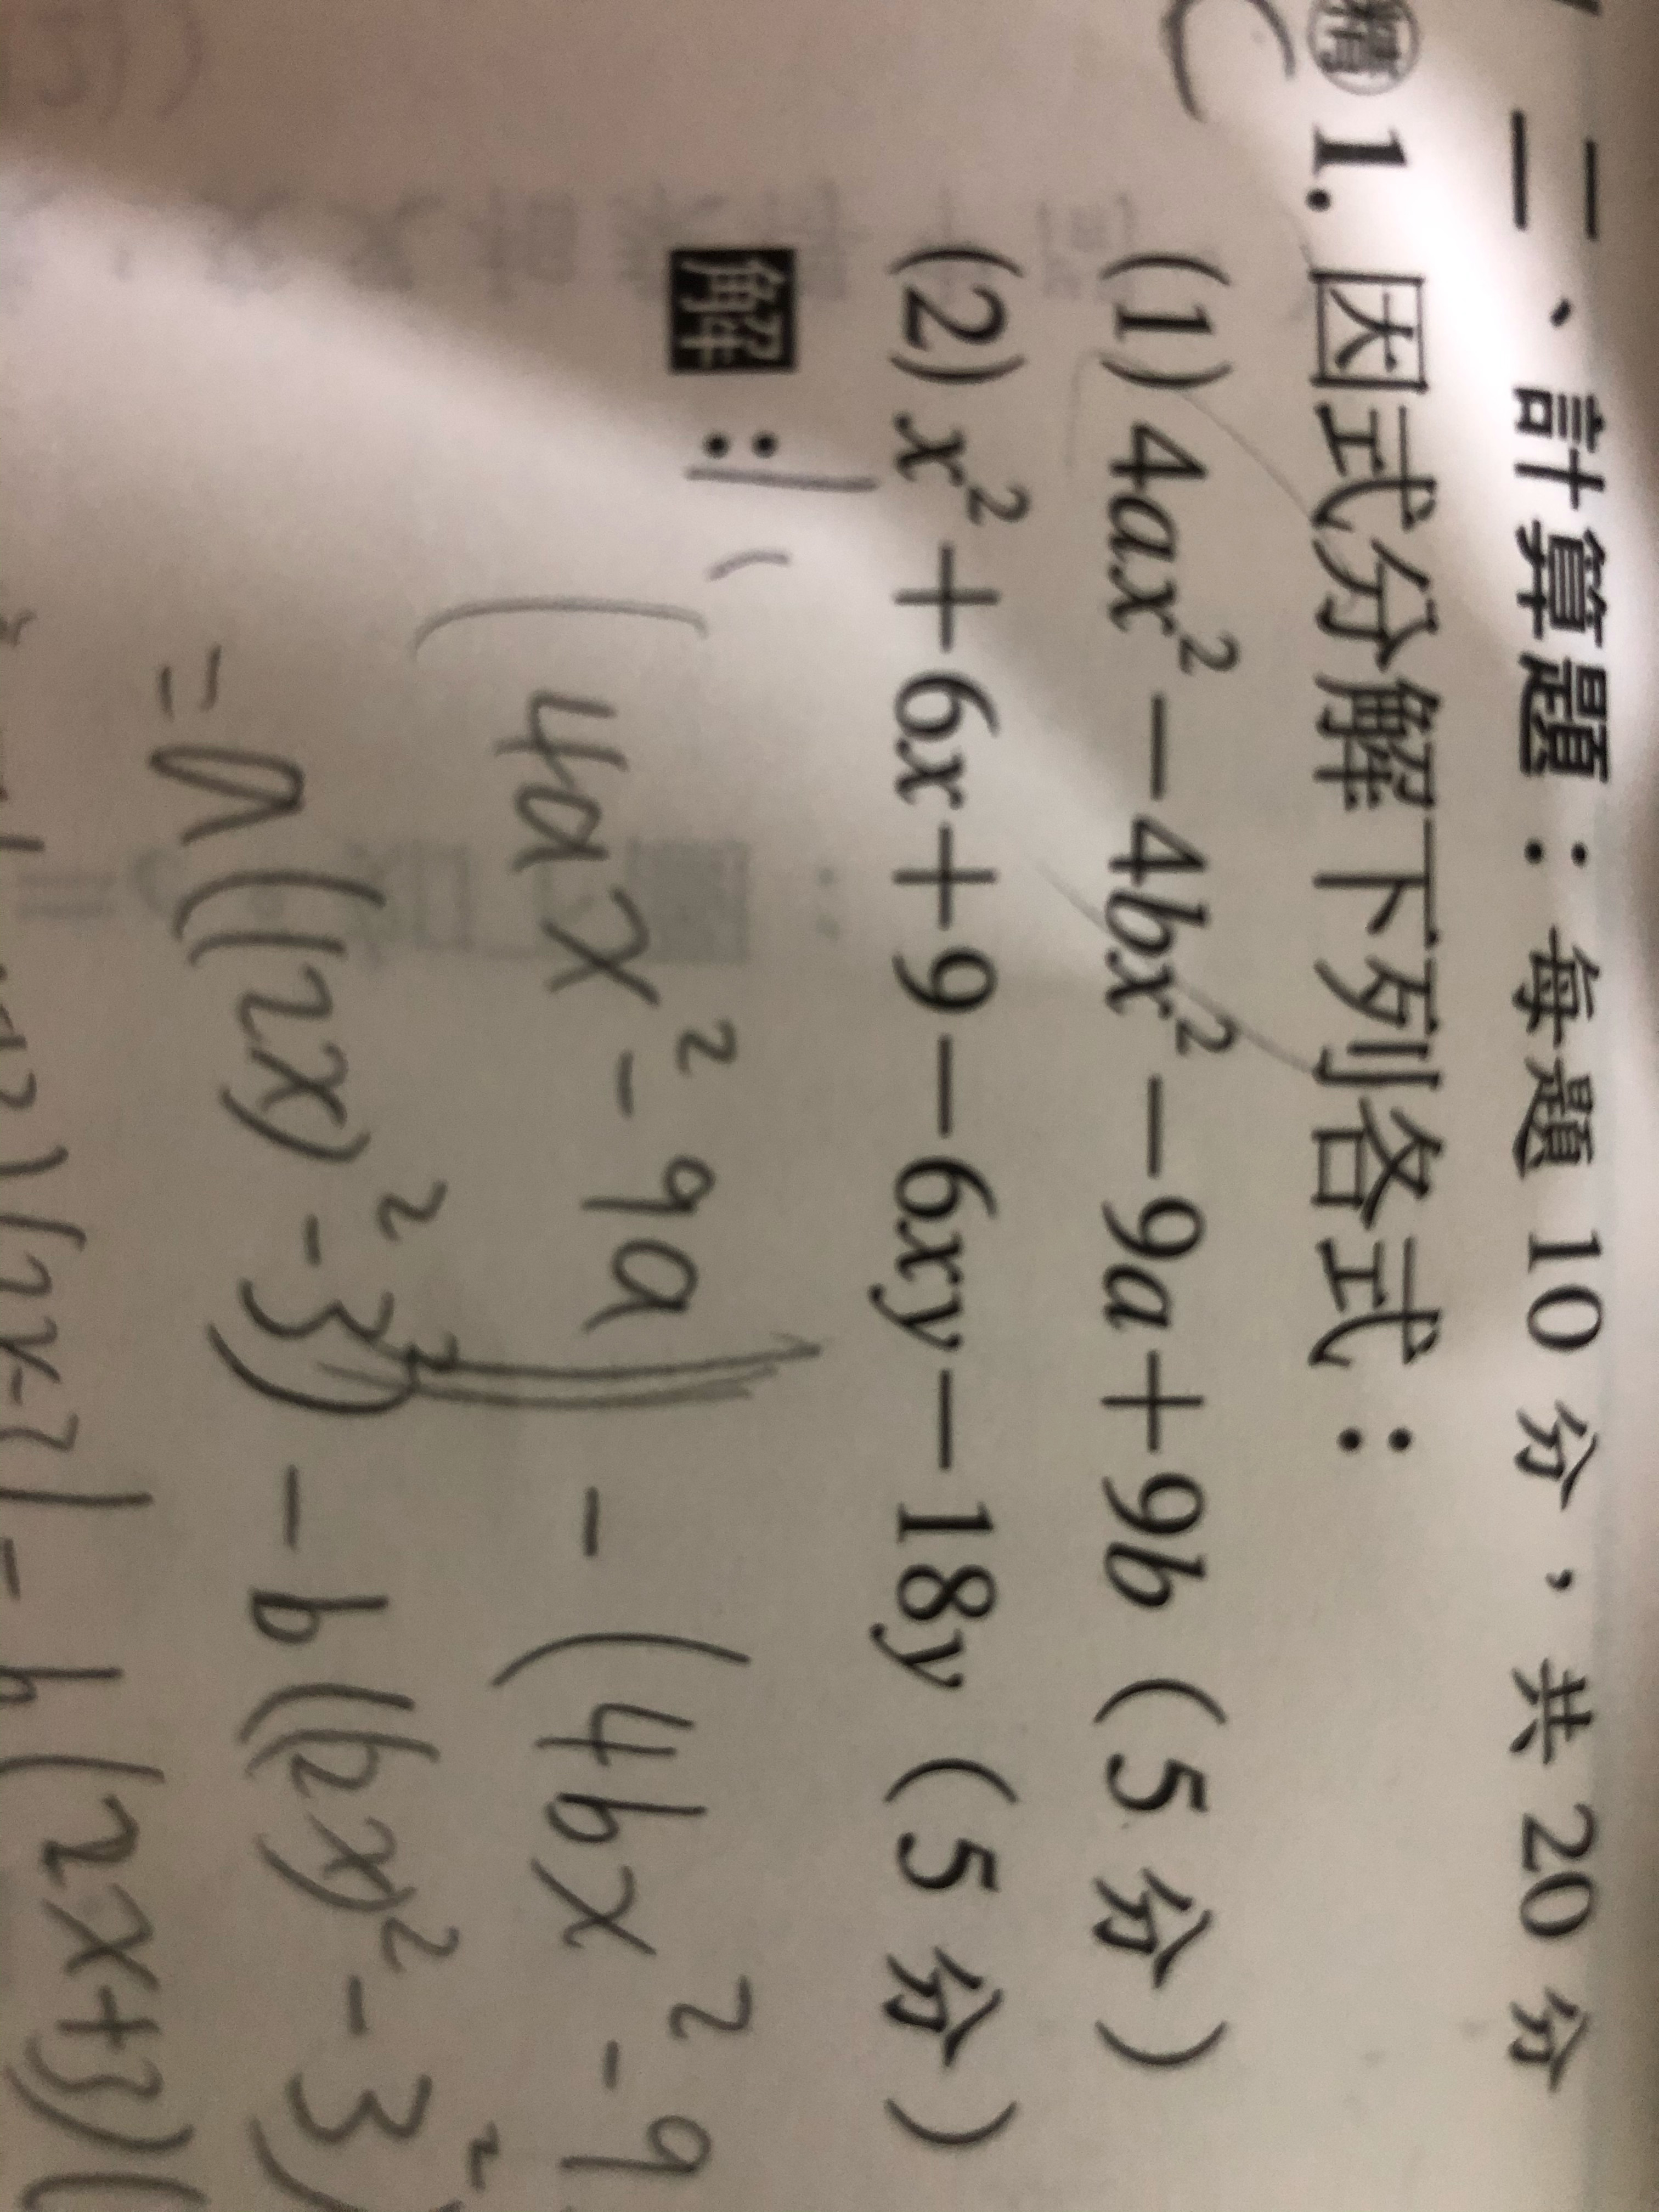 二、計算題：每題 10 分，共 20 分
精 1. 因式分解下列各式：
(1) 4ax² － 4bx² － 9a ＋ 9b（5 分）
(2) x² ＋ 6x ＋ 9 － 6xy － 18y（5 分）
解：1、
(4ax² - 9a) - (4bx² - 9
= a((2x)² - 3²) - b((2x)² - 3²)
- b(2x+3)(